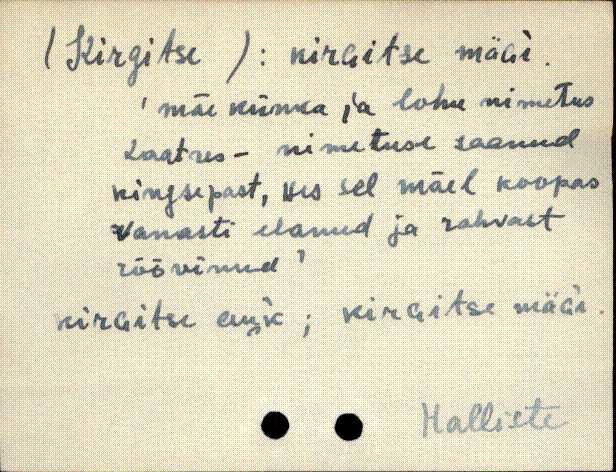 (Kirgitse): kirGitse mäGi.
'mäe künka ja lohu nimetus
Laatres - nimetuse saanud
kingsepast, kes sel mäel koopas
vanasti elanud ja rahvast
röövinud'
kirGitse ; kirGitse mäGi.
Halliste